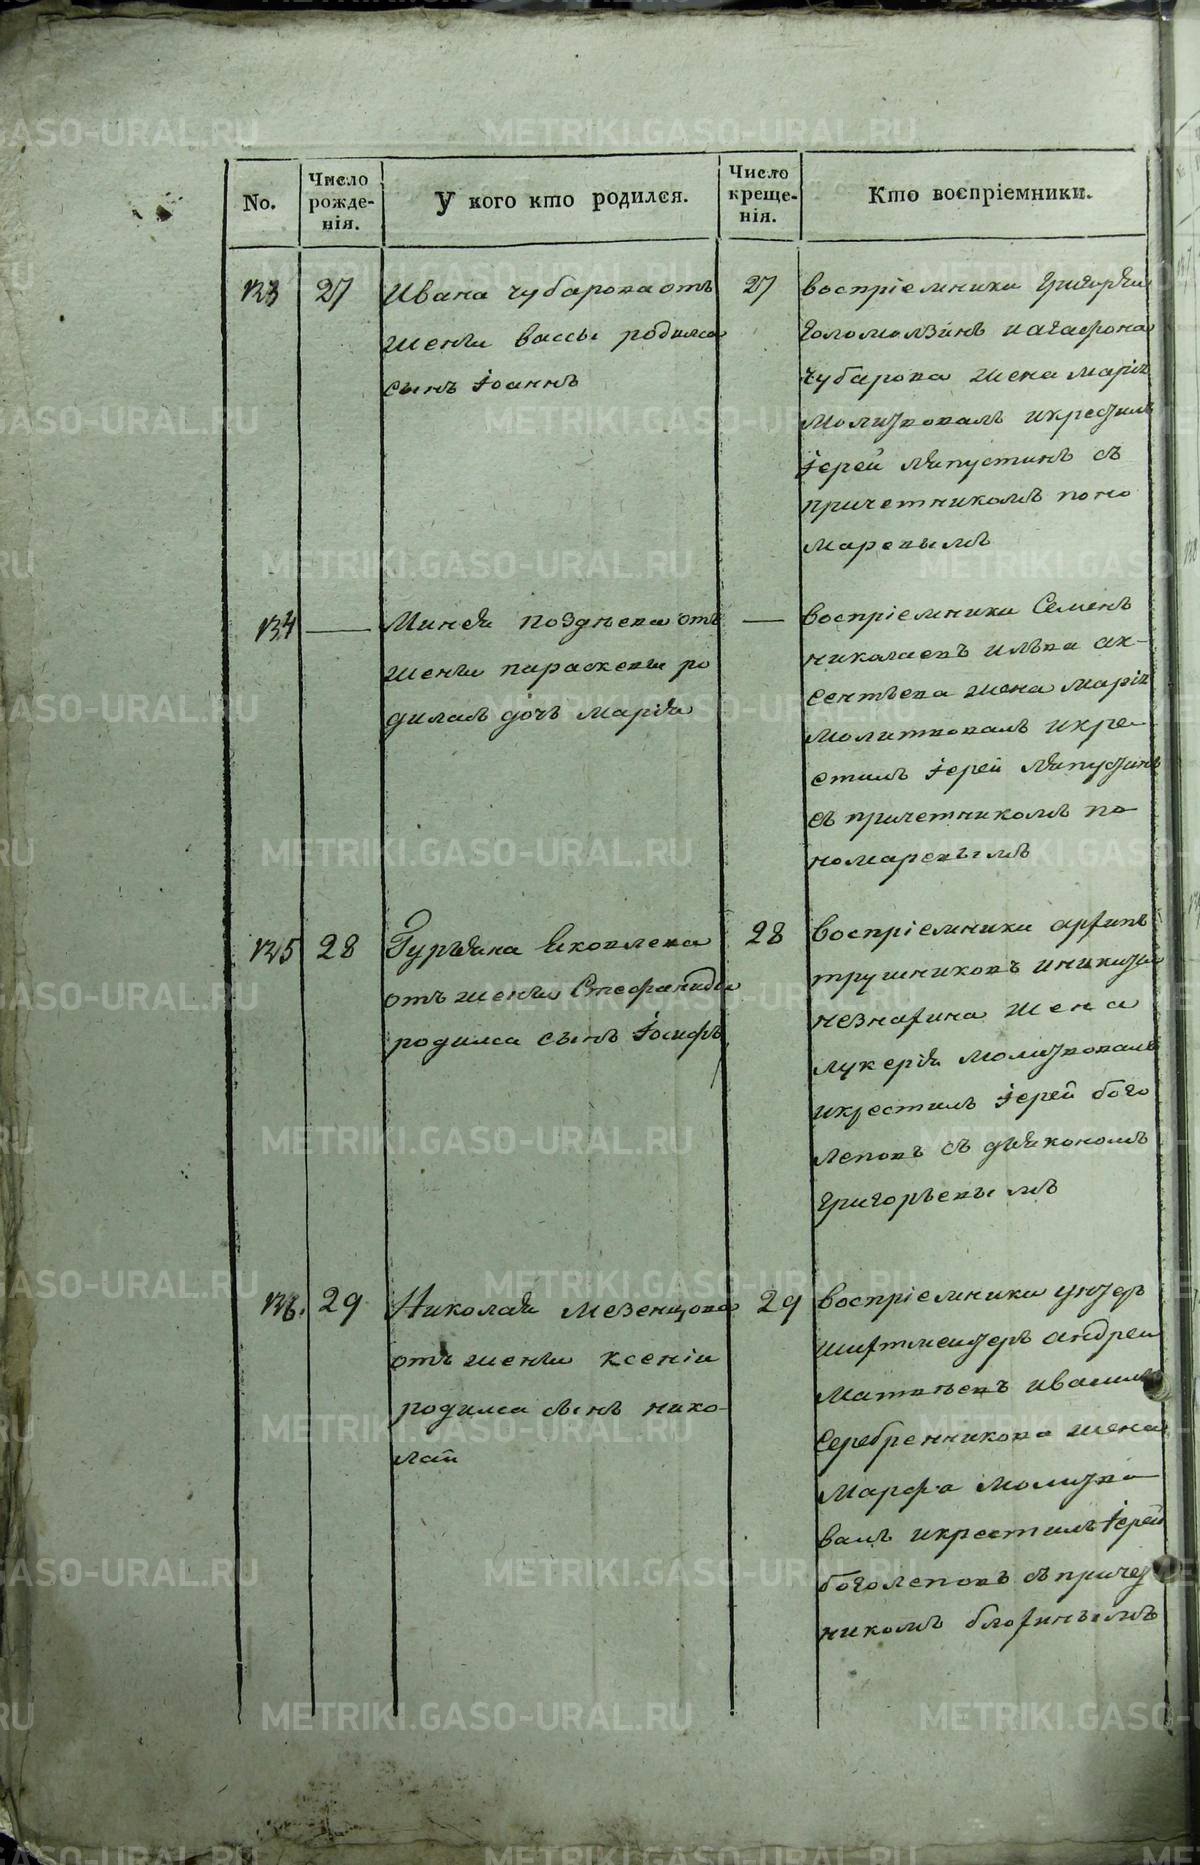 No.
Число рожде-нія.
У кого кто родился.
Число креще-нія.
Кто воспріемники.
133 27
Ивана Чубарова отъ
жены Вассы родился
сынъ Іоаннъ
27
воспріемники Григорей
Голомолзинъ и Агафона
Чубарова жена Марія
молитвовалъ и крестилъ
Іерей Ляпустинъ съ
причетникомъ поно
маревымъ
134 —
Минея Позднева отъ
жены параскевы ро
дилась дочь Марія
—
воспріемники Семенъ
Николаевъ и Льва Ак-
сентьева жена Марія
молитвовалъ и кре-
стилъ Іерей Ляпустинъ
съ причетникомъ по-
номаревымъ
135 28
Гурьяна Яковлева
отъ жены Стефаниды
родился сынъ Іосифъ
28
воспріемники архипъ
трушниковъ и никиты
жена
лукерія молитвовалъ
и крестилъ Іерей бого
леповъ съ дьякономъ
Григорьевымъ
136. 29
Николая Мезенцова
отъ жены Ксеніи
родился сынъ Нико-
лай
29
воспріемники унтеръ
шихтмейстеръ андреи
Матвеевъ и васил
Серебренникова жена
Марфа молитво-
валъ и крестилъ Іерей
боголеповъ съ причет
никомъ блохинымъ
METRIKI.GASO-URAL.RU